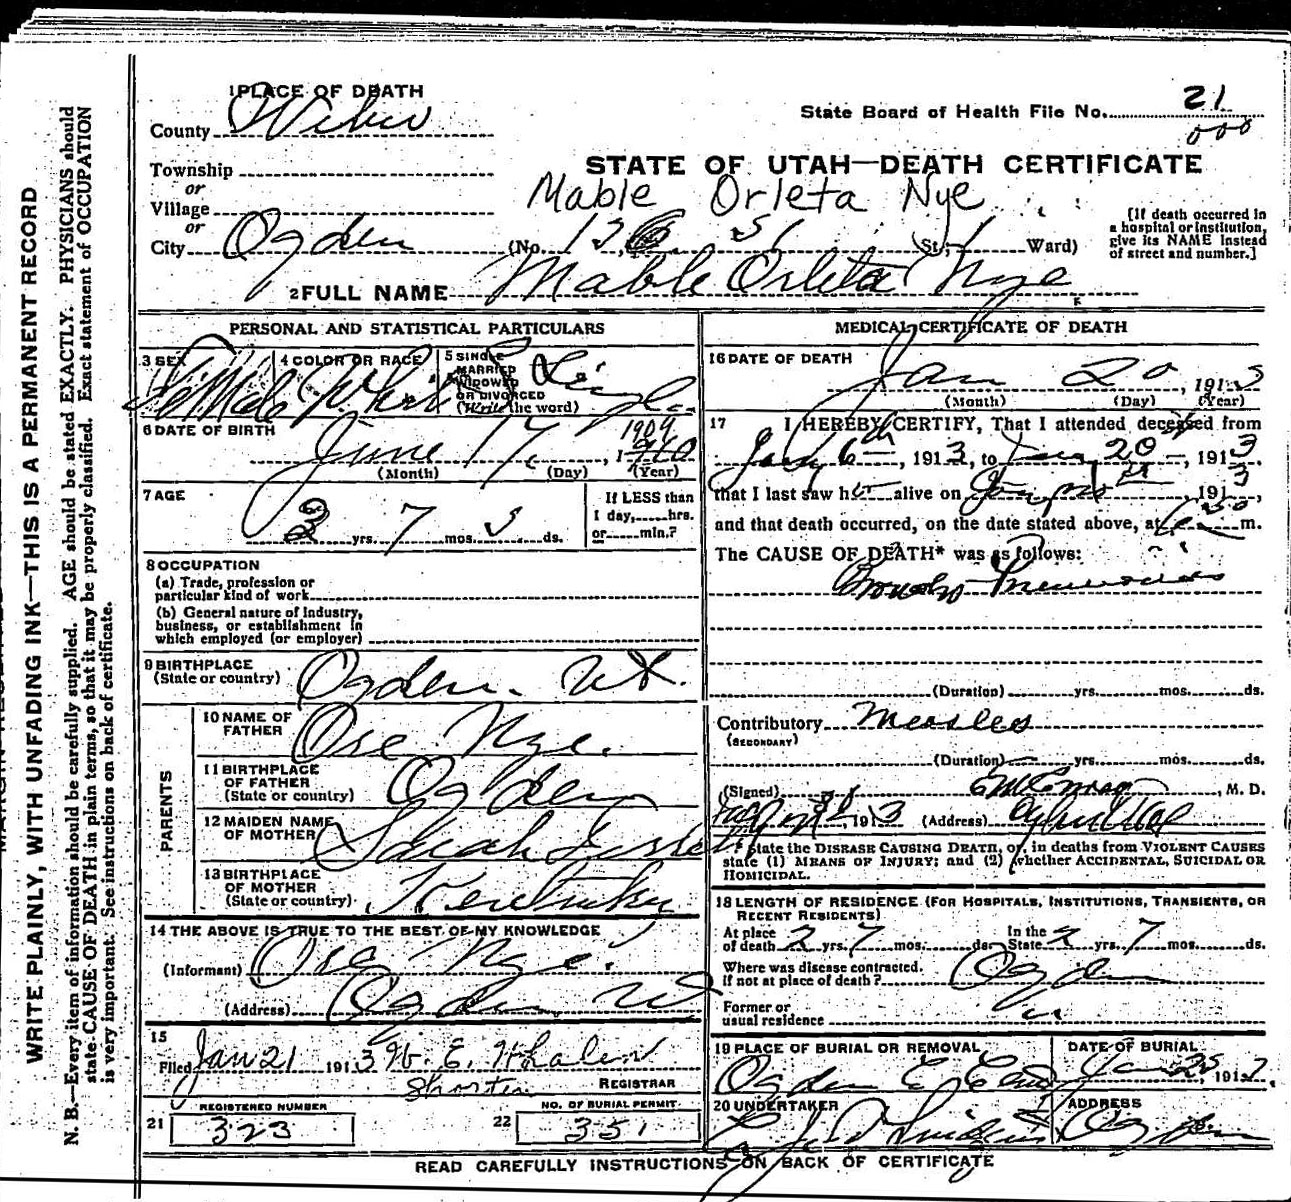 1 PLACE OF DEATH
County Weber
State Board of Health File No. 21
000
STATE OF UTAH—DEATH CERTIFICATE
Township
or
Village
or
Mable Orleta Nye
City Ogden (No. St., 1 Ward)
[If death occurred in a hospital or institution, give its NAME instead of street and number.]
2 FULL NAME Mable Orleta Nye
PERSONAL AND STATISTICAL PARTICULARS
3 SEX Female
4 COLOR OR RACE White
5 SINGLE MARRIED WIDOWED OR DIVORCED (Write the word) Single
6 DATE OF BIRTH
June 17, 1909 1910
(Month) (Day) (Year)
7 AGE
3 yrs. 7 mos. 3 ds.
If LESS than
1 day, hrs.
or min.?
8 OCCUPATION
(a) Trade, profession or
particular kind of work
(b) General nature of industry,
business, or establishment in
which employed (or employer)
9 BIRTHPLACE
(State or country) Ogden. Ut.
PARENTS
10 NAME OF
FATHER Ora Nye.
11 BIRTHPLACE
OF FATHER
(State or country) Ogden
12 MAIDEN NAME
OF MOTHER Sarah
13 BIRTHPLACE
OF MOTHER
(State or country) Kentucky
14 THE ABOVE IS TRUE TO THE BEST OF MY KNOWLEDGE
(Informant) Ora Nye.
(Address) Ogden Ut
15
Filed Jan 21 1913 W. E. Whalen
Shorten REGISTRAR
REGISTERED NUMBER
21 323
NO. OF BURIAL PERMIT
22 351
MEDICAL CERTIFICATE OF DEATH
16 DATE OF DEATH
Jan 20, 1913
(Month) (Day) (Year)
17 I HEREBY CERTIFY, That I attended deceased from
6th, 1913, to Jan 20, 1913
that I last saw her alive on , 1913,
and that death occurred, on the date stated above, at m.
The CAUSE OF DEATH* was as follows:
Broncho Pneumonia
(Duration) yrs. mos. ds.
Contributory Measles
(SECONDARY)
(Duration) yrs. mos. ds.
(Signed) E M Conroy, M. D.
, 1913 (Address) Ogden Utah
* State the DISEASE CAUSING DEATH, or, in deaths from VIOLENT CAUSES
state (1) MEANS OF INJURY; and (2) whether ACCIDENTAL, SUICIDAL OR
HOMICIDAL.
18 LENGTH OF RESIDENCE (FOR HOSPITALS, INSTITUTIONS, TRANSIENTS, OR
RECENT RESIDENTS)
At place
of death 2 yrs. 7 mos. ds.
In the
State 2 yrs. 7 mos. ds.
Where was disease contracted.
If not at place of death? Ogden
Former or
usual residence
19 PLACE OF BURIAL OR REMOVAL
Ogden
DATE OF BURIAL
Jan 191
20 UNDERTAKER
ADDRESS
Ogden
READ CAREFULLY INSTRUCTIONS ON BACK OF CERTIFICATE
WRITE PLAINLY, WITH UNFADING INK—THIS IS A PERMANENT RECORD
N. B.—Every item of information should be carefully supplied. AGE should be stated EXACTLY. PHYSICIANS should
state CAUSE OF DEATH in plain terms, so that it may be properly classified. Exact statement of OCCUPATION
is very important. See instructions on back of certificate.